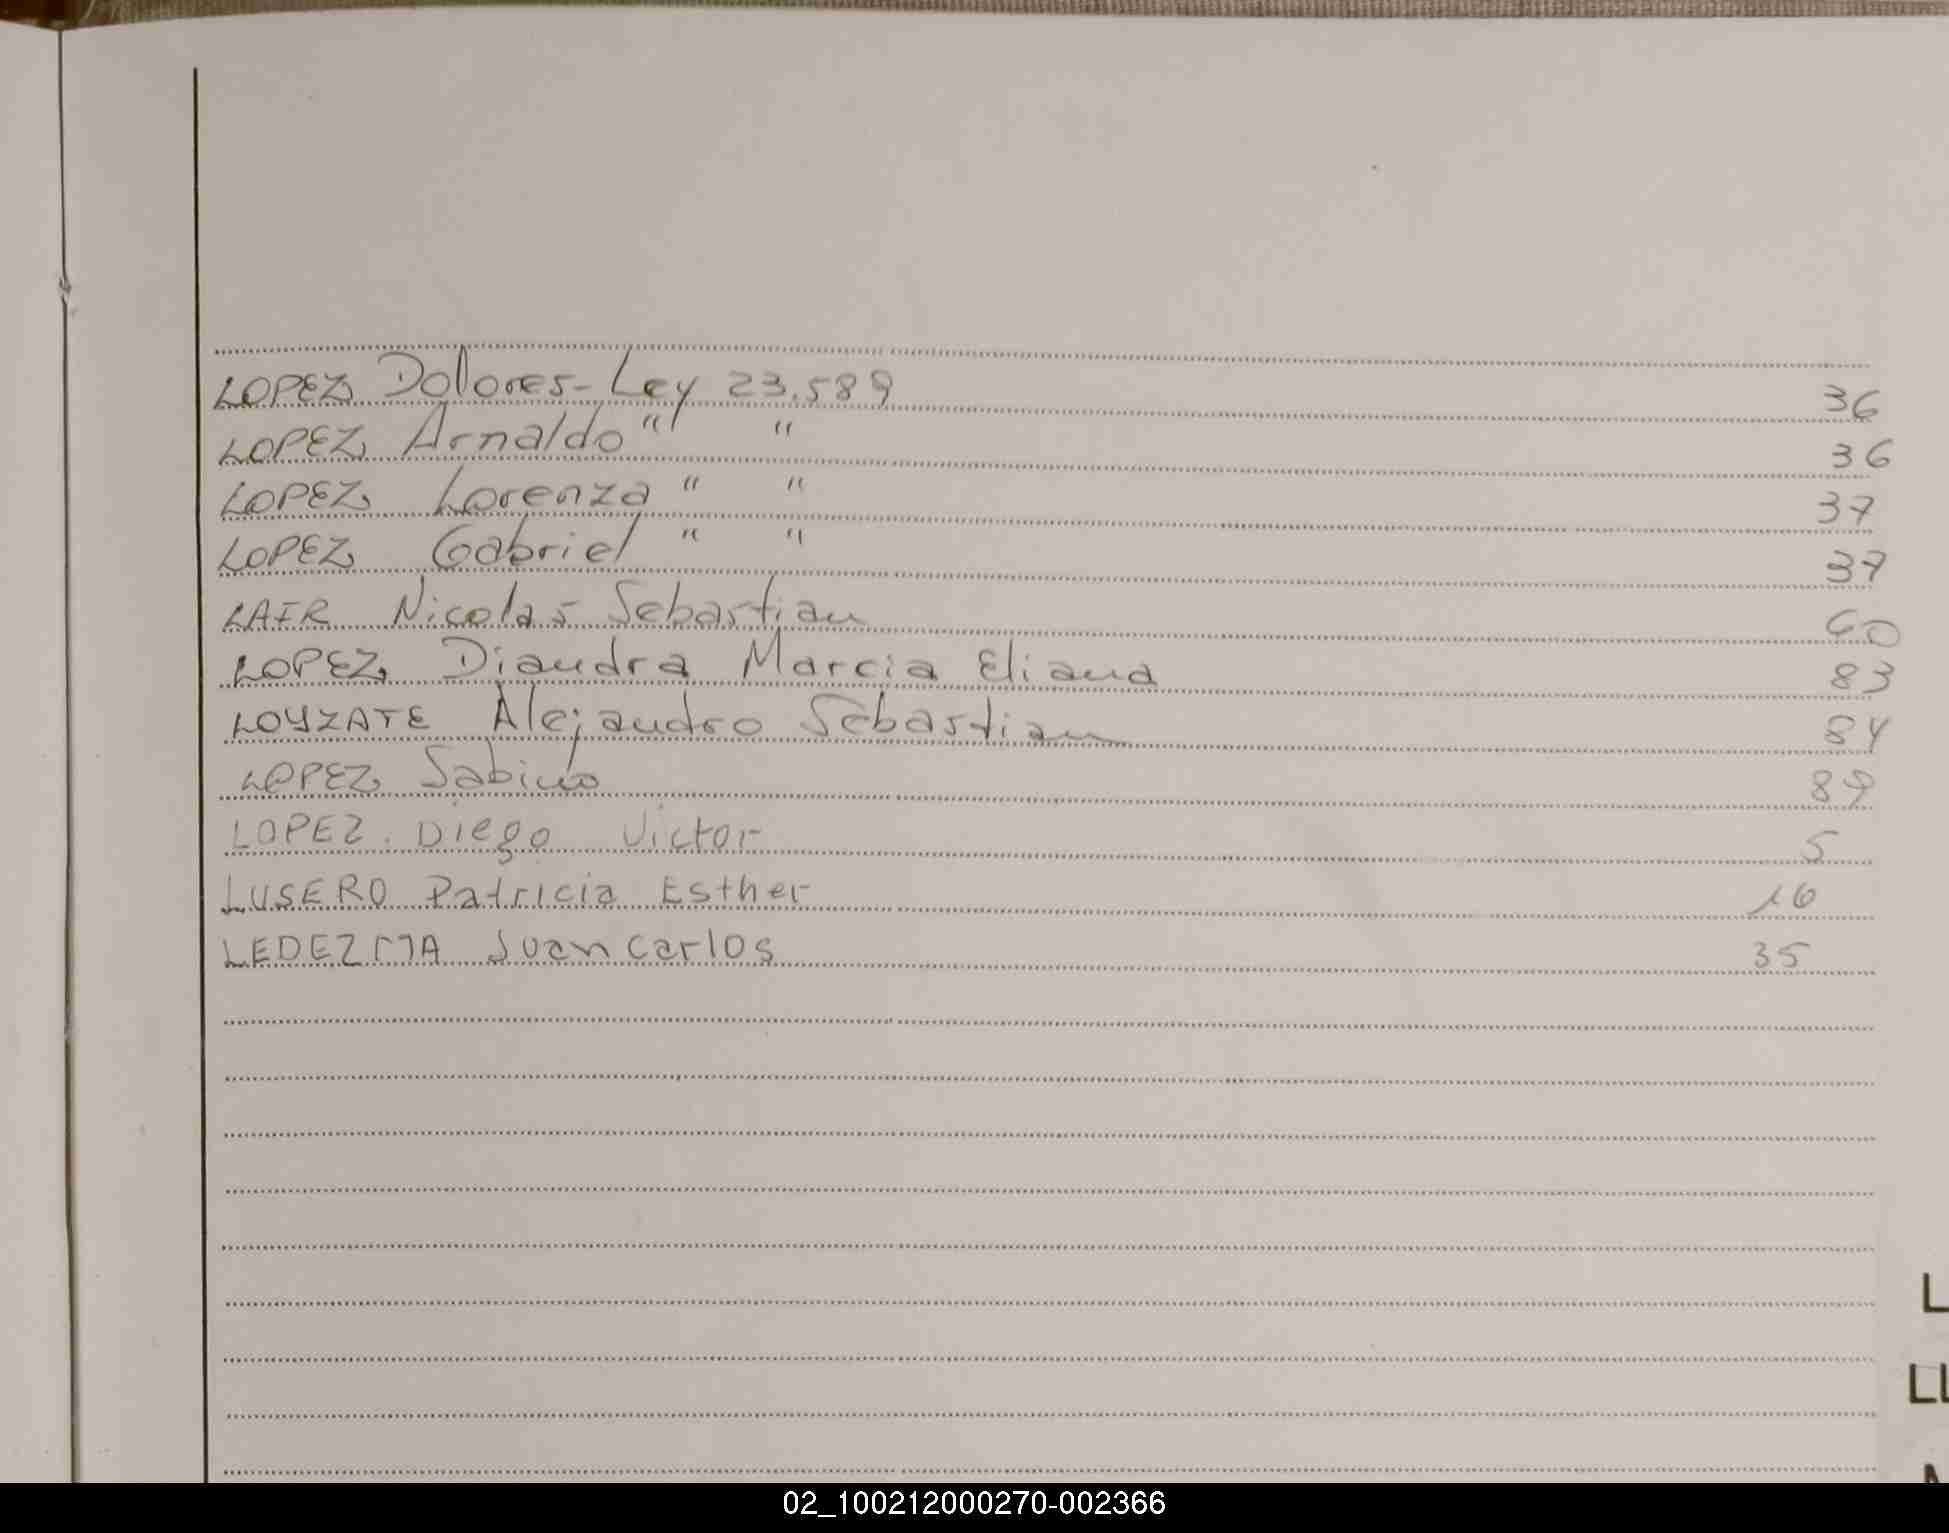 LOPEZ Dolores - Ley 23.589 36
LOPEZ Arnaldo " " 36
LOPEZ Lorenza " " 37
LOPEZ Gabriel " " 37
LAIR Nicolas Sebastian 60
LOPEZ Diandra Marcia Eliana 83
LOYZATE Alejandro Sebastian 84
LOPEZ Sabino 89
LOPEZ. Diego Victor 5
LUSERO Patricia Esther 16
LEDEZMA Juan Carlos 35
L
LL
02_100212000270-002366